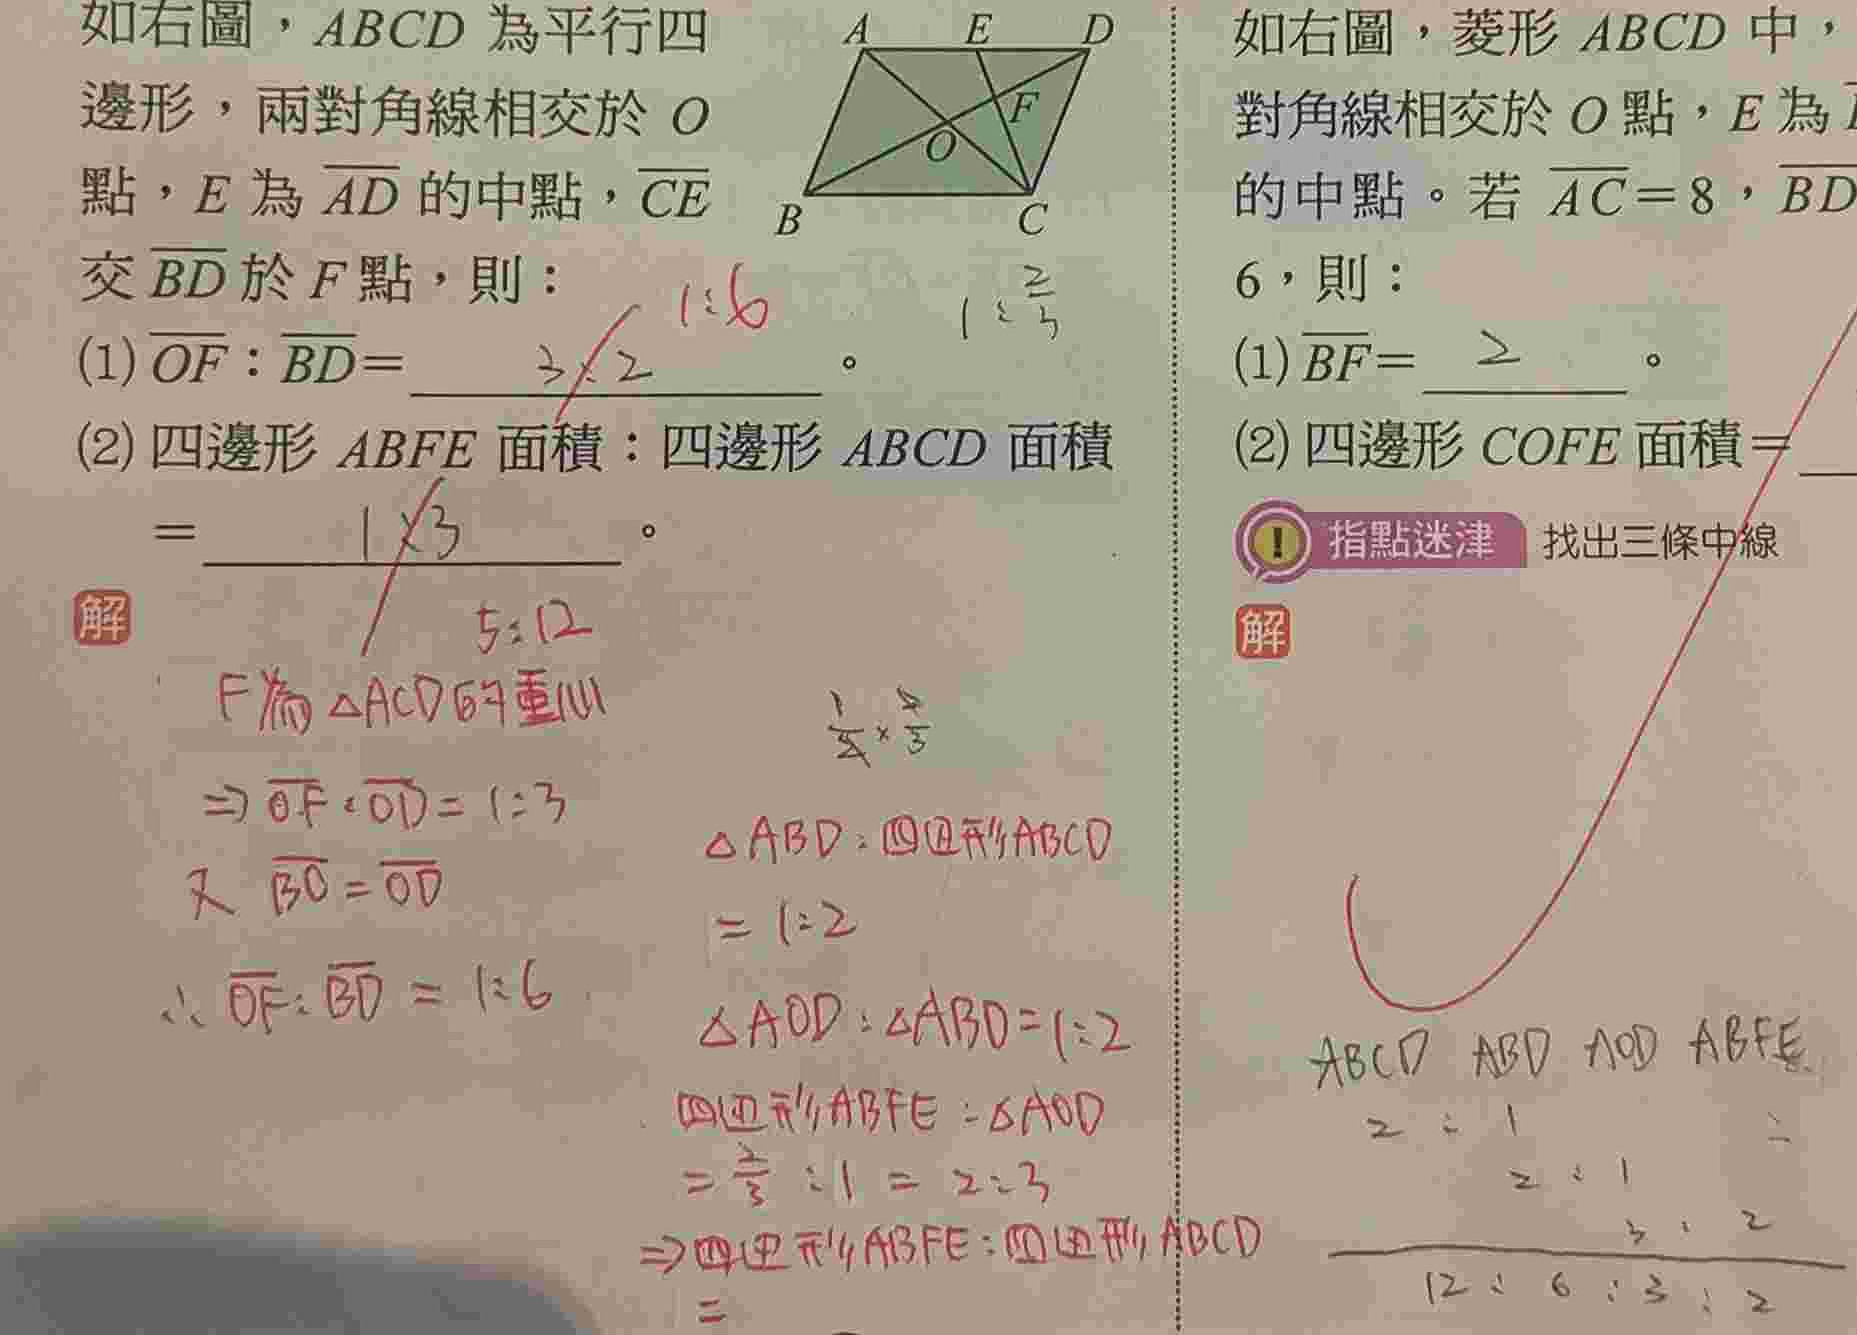 如右圖，ABCD 為平行四
邊形，兩對角線相交於 O
點，E 為 AD 的中點，CE
交 BD 於 F 點，則：
A E D
F
O
B C
1:6
1:2/3
(1) OF：BD= 3:2 。
(2) 四邊形 ABFE 面積：四邊形 ABCD 面積
= 1:3 。
5:12
解
F為△ACD的重心
⇒ OF:OD=1:3
又 BO=OD
∴ OF:BD=1:6
△ABD:四边形ABCD
=1:2
△AOD:△ABD=1:2
四边形ABFE:△AOD
=2/3:1=2:3
⇒四边形ABFE:四边形ABCD
=
如右圖，菱形 ABCD 中，
對角線相交於 O 點，E 為
的中點。若 AC=8，BD
6，則：
(1) BF= 2 。
(2) 四邊形 COFE 面積=
! 指點迷津 找出三條中線
解
ABCD ABD AOD ABFE
2 : 1 :
2 : 1
3 : 2
12 : 6 : 3 : 2